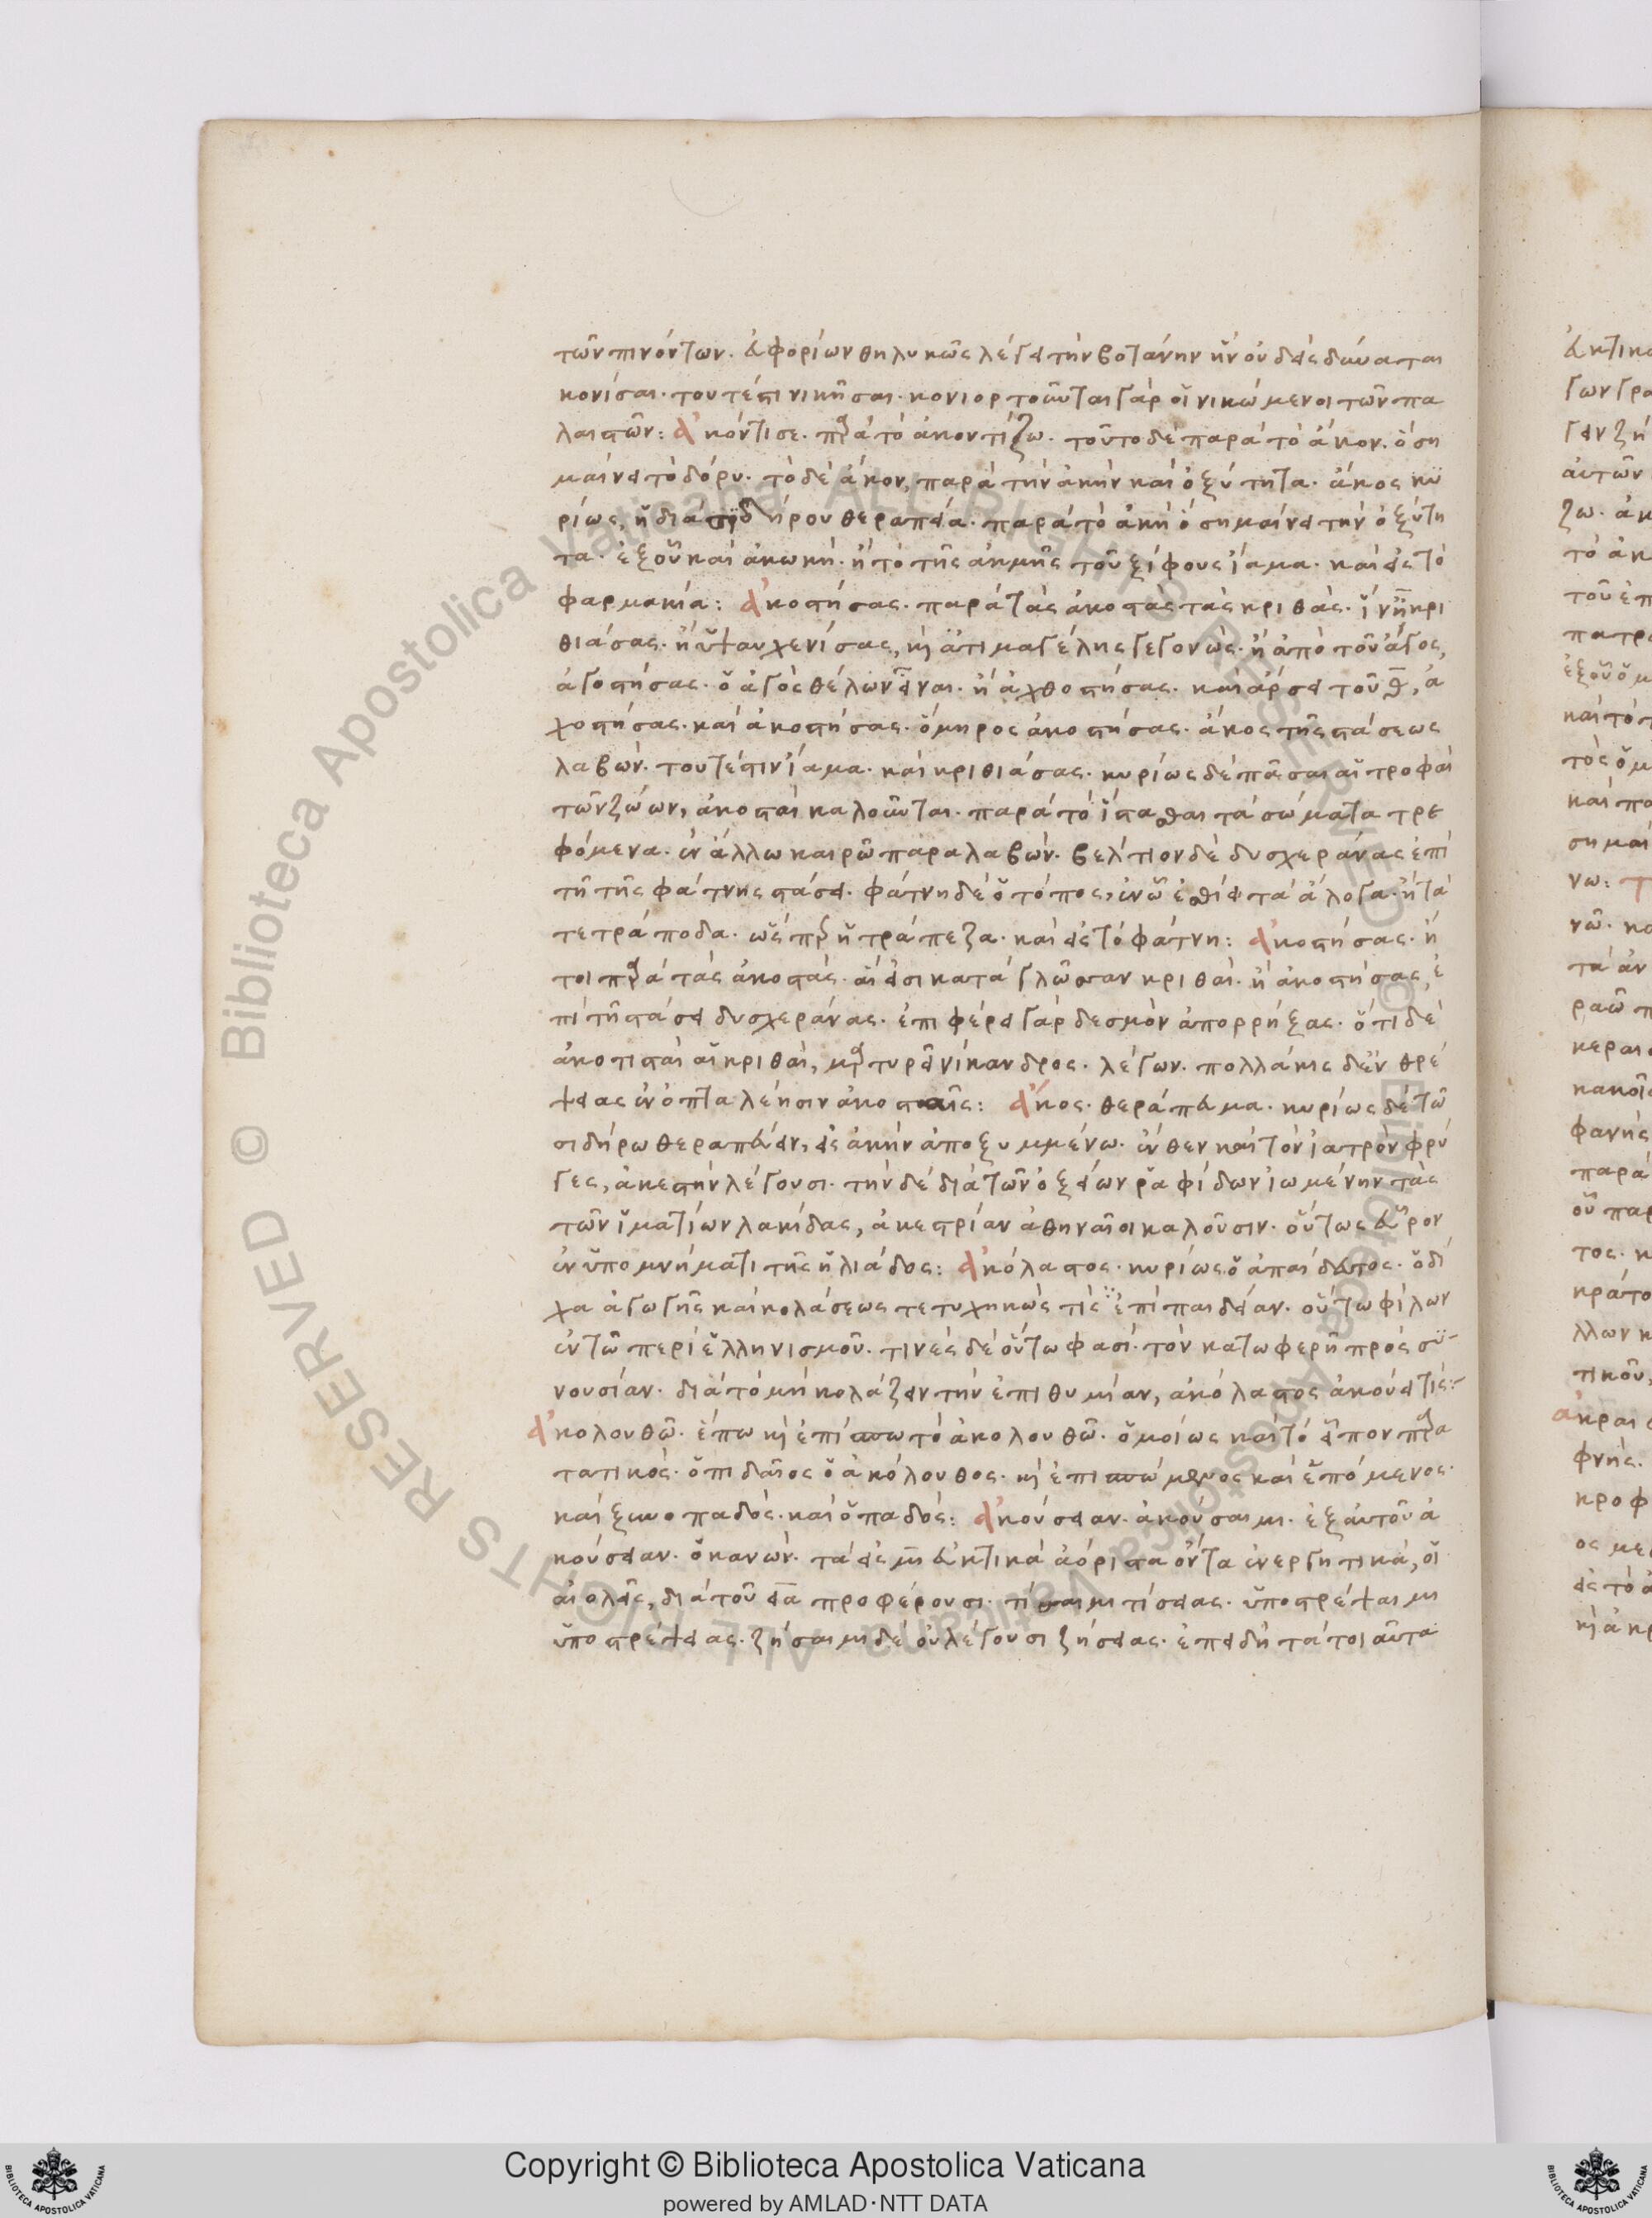 τῶν πινόντων. εὐφορίων θηλυκῶς λέγει τὴν βοτάνην ἣν οὐδεὶς δύναται
κονίσαι. τουτέστι νικῆσαι. κονιορτοῦνται γὰρ οἱ νικώμενοι τῶν πα
λαιστῶν: ἀκόντισε. παρὰ τὸ ἀκοντίζω. τοῦτο δὲ παρὰ τὸ ἄκον. ὃ ση
μαίνει τὸ δόρυ. τὸ δὲ ἄκον, παρὰ τὴν ἀκὴν καὶ ὀξύτητα. ἄκος κυ
ρίως, ἡ δια σιδήρου θεραπεία. παρὰ τὸ ἀκὴ ὃ σημαίνει τὴν ὀξύτη
τα. ἐξ οὗ καὶ ἀκωκή. ἢ τὸ τῆς ἀκμῆς τοῦ ξίφους ἴαμα. καὶ εἰς τὸ
φαρμακία: ἀκοστήσας. παρὰ τὰς ἀκοστὰς τὰς κριθάς. ἵν ᾖ κρι
θιάσας. ἢ ὑψαυχενίσας, καὶ ἀτιμαγέλης γεγονώς. ἢ ἀπὸ τοῦ ἀγὸς,
ἀγοστήσας. ὁ ἀγὸς θέλων εἶναι. ἢ ἀχθοστήσας. καὶ ἄρσει τοῦ θ, ἀ
χοστήσας. καὶ ἀκοστήσας. ὅμηρος ἀκοστήσας. ἄκος τῆς στάσεως
λαβών. τουτέστιν ἴαμα. καὶ κριθιάσας. κυρίως δὲ πᾶσαι αἱ τροφαὶ
τῶν ζώων, ἀκοσταὶ καλοῦνται. παρὰ τὸ ἵστασθαι τὰ σώματα τρε
φόμενα. ἐν ἄλλω καιρῶ παραλαβών. βέλτιον δὲ δυσχεράνας ἐπὶ
τῆ τῆς φάτνης στάσει. φάτνη δὲ ὁ τόπος, ἐν ὧ ἐσθίει τὰ ἄλογα. ἢ τὰ
τετράποδα. ὥσπερ ἡ τράπεζα. καὶ εἰς τὸ φάτνη: ἀκοστήσας. ἤ
τοι παρὰ τὰς ἀκοστάς. αἵ εἰσι κατὰ γλῶσσαν κριθαί. ἢ ἀκοστήσας, ἐ
πὶ τῆ στάσει δυσχεράνας. ἐπιφέρει γὰρ δεσμὸν ἀπορρήξας. ὅτι δὲ
ἀκοτισταὶ αἱ κριθαί, μαρτυρεῖ νίκανδρος. λέγων. πολλάκις δ ἐν θρέ
ψειας ἐν ὀπταλέησιν ἀκοσταῖς: ἄκος. θεράπευμα. κυρίως δὲ τῶ
σιδήρω θεραπεύειν, εἰς ἀκὴν ἀποξυμμένω. ἔνθεν καὶ τὸν ἰατρὸν φρύ
γες, ἀκεστὴν λέγουσι. τὴν δὲ διὰ τῶν ὀξειῶν ῥαφίδων ἰωμένην τὰς
τῶν ἱματίων λακίδας, ἀκεστρίαν ἀθηναῖοι καλοῦσιν. οὕτως εὗρον
ἐν ὑπομνήματι τῆς ἠλιάδος: ἀκόλαστος. κυρίως ὁ ἀπαίδευτος. ὁ δί
χα ἀγωγῆς καὶ κολάσεως τετυχηκώς τις ἐπὶ παιδείαν. οὕτω φίλων
ἐν τῶ περὶ ἑλληνισμοῦ. τινὲς δὲ οὕτω φασί. τὸν κατωφερῆ πρὸς συ
νουσίαν. διὰ τὸ μὴ κολάζειν τὴν ἐπιθυμίαν, ἀκόλαστος ἀκούει τις:
ἀκολουθῶ. ἕπω καὶ ἐπίσω τὸ ἀκολουθῶ. ὁμοίως καὶ τὸ εἷπον παρα
τατικός. ὅπιδαῖος ὁ ἀκόλουθος. καὶ ἐπισπώμενος καὶ ἑπόμενος.
καὶ ξυνοπαδός. καὶ ὀπαδός: ἀκούσειαν. ἀκούσαιμι. ἐξ αὐτοῦ ἀ
κούσειαν. ὁ κανών. τὰ εἰς μι εὐκτικὰ ἀόριστα ὄντα ἐνεργητικά, οἱ
αἰολεῖς, διὰ τοῦ εια προφέρουσι. τίσαιμι τίσειας. ὑποστρέψαιμι
ὑποστρέψειας. ζήσαιμι δὲ οὐ λέγουσι ζήσειας. ἐπειδὴ τὰ τοιαῦτα
Copyright © Biblioteca Apostolica Vaticana
powered by AMLAD·NTT DATA